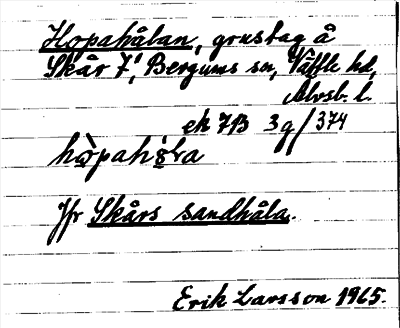 Hopahålan, grustag å
Skår 7¹, Bergums sn, Vättle hd,
Älvsb. l.
ek 7B 3g/374
hò̱pahò̱ra
Jfr Skårs sandhåla.
Erik Larsson 1965.